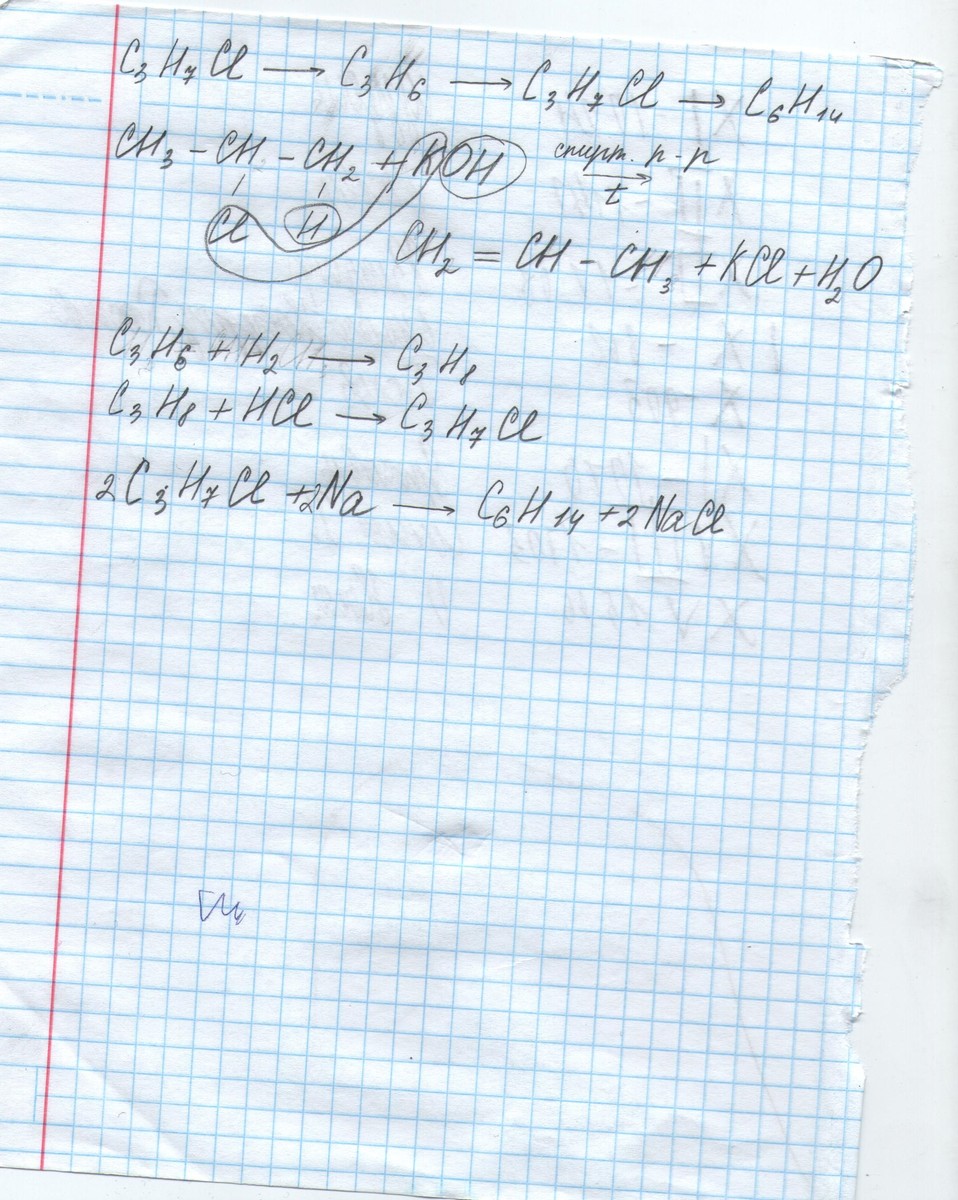 C₃H₇Cl → C₃H₆ → C₃H₇Cl → C₆H₁₄
CH₃ - CH - CH₂ + KOH спирт. р-р → t
Cl H
CH₂ = CH - CH₃ + KCl + H₂O
C₃H₆ + H₂ → C₃H₈
C₃H₈ + HCl → C₃H₇Cl
2C₃H₇Cl + 2Na → C₆H₁₄ + 2NaCl